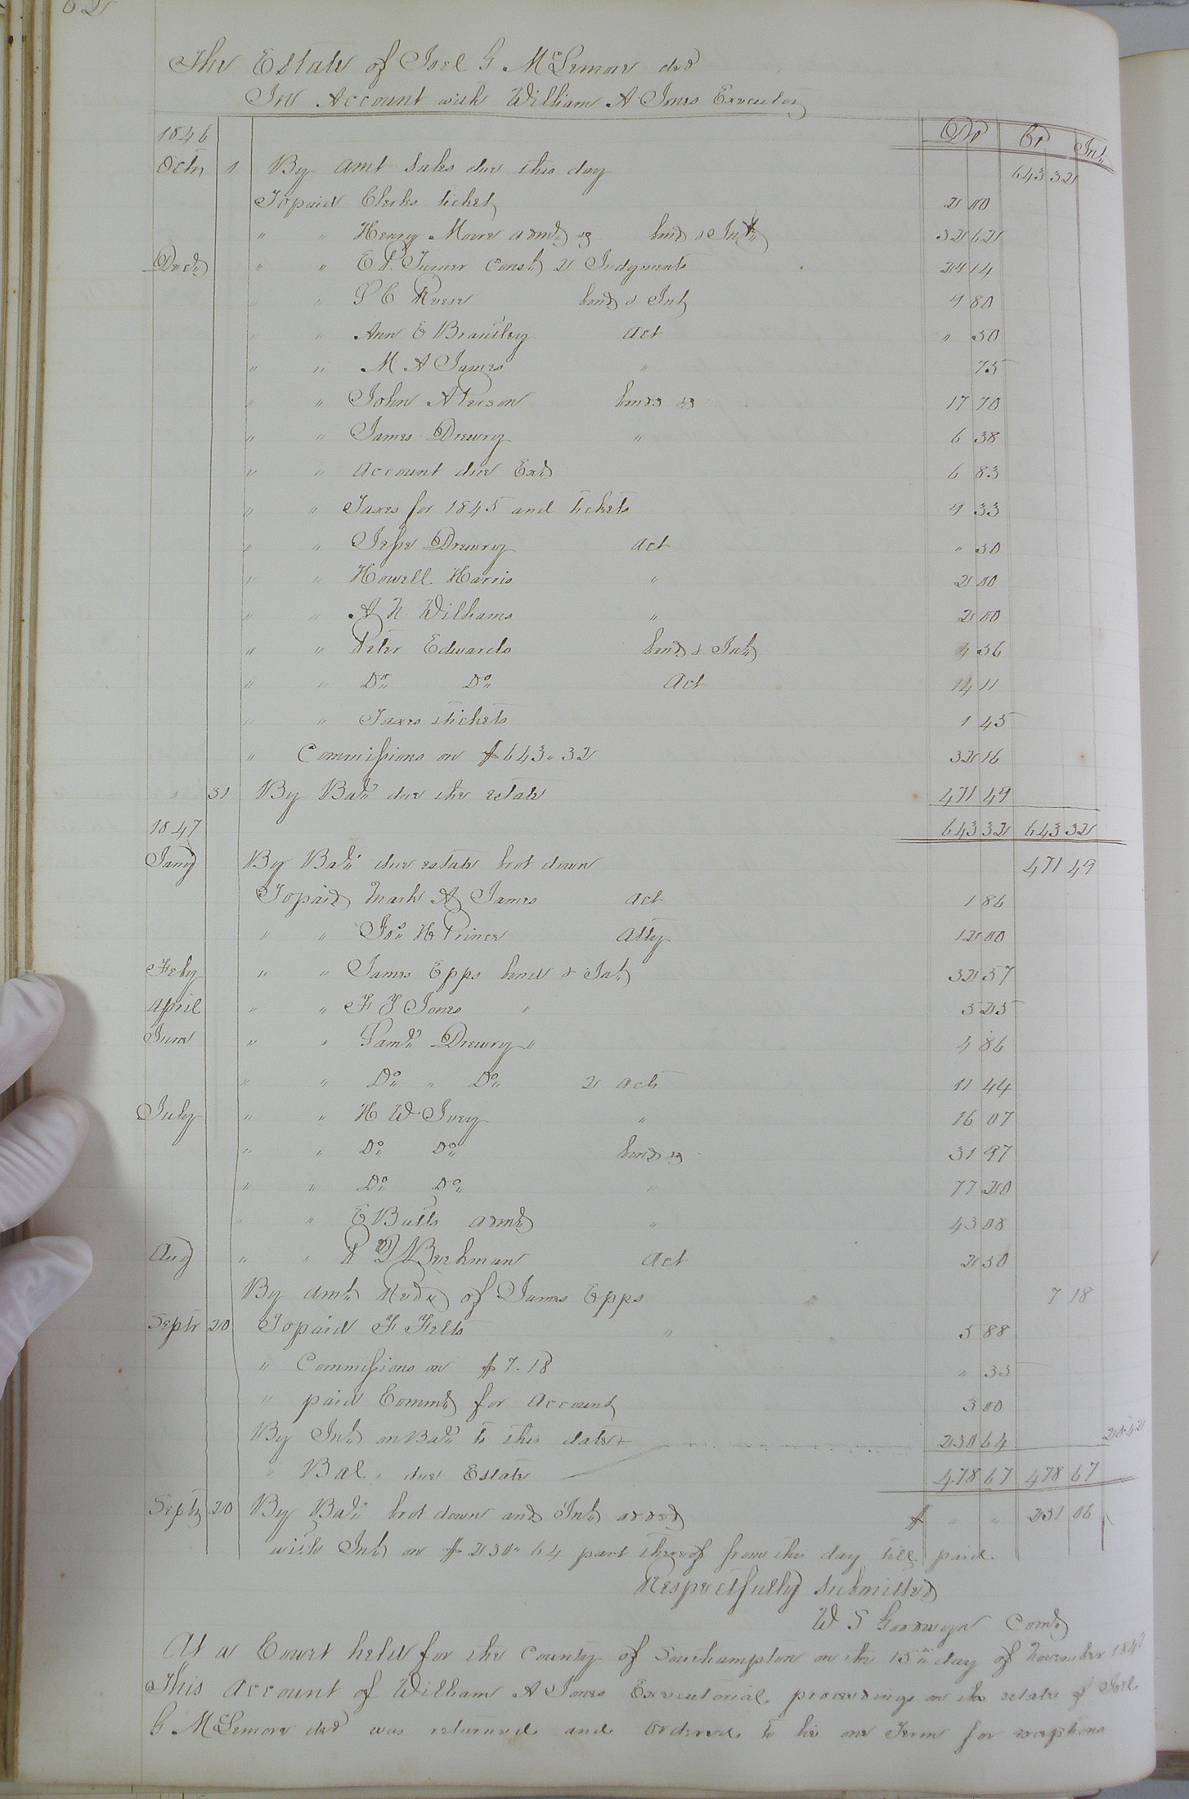 The Estate of Joel G McLemore decd
In Account with William A Jones Executor
1846 Dr Cr Int
Octr 1 By amt Sales due this day 643 32
To paid Clerks ticket 2 00
" " Henry Moore admr bond & Int 32 62
Decr " " E P Turner Const 2 Judgments 24 14
" " bond & Int 4 80
" " Ann E Brantley act " 50
" " M A James " 75
" " John bonds 17 70
" " James Drewry " 6 38
" " account due Exr 6 83
" " Taxes for 1845 and tickets 4 33
" " Jesse Drewry act " 50
" " Howell Harris " 2 00
" " A N Williams " 2 00
" " Peter Edwards bond & Int 4 56
" " Do Do act 14 11
" " Taxes & tickets 1 45
" Commissions on $643.32 32 16
" 31 By Bal due the estate 471 49
1847 643 32 643 32
Jany By Bal due estate brot down 471 49
To paid Mark A James act 1 86
" " Jos H Prince Atty 12 00
Feby " " James Epps bond & Int 32 57
April " " F J Jones " 5 25
June " " Saml Drewry " 4 86
" " Do " Do 2 acts 11 44
July " " H W Ivey " 16 07
" " Do Do bond 31 97
" " Do Do " 77 20
" " E Butts admr " 43 08
Aug " " act 2 50
By amt Recd of James Epps 7 18
Septr 20 To paid F Felts " 5 88
" Commissions on $7.18 " 35
" paid Commr for account 3 00
By Int on Bal to this date 230 64 20.42
" Bal. due Estate 478 67 478 67
Septr 20 By Bal brot down and Int added $ " " 251 06
with Int on $230.64 part thereof from this day till paid.
Respectfully Submitted
W S Goodwyn Comr
At a Court held for the County of Southampton on the 15th day of November 1847
This account of William A Jones Executorial proceedings on the estate of Joel
G McLemore decd was returned and ordered to lie one Term for exceptions